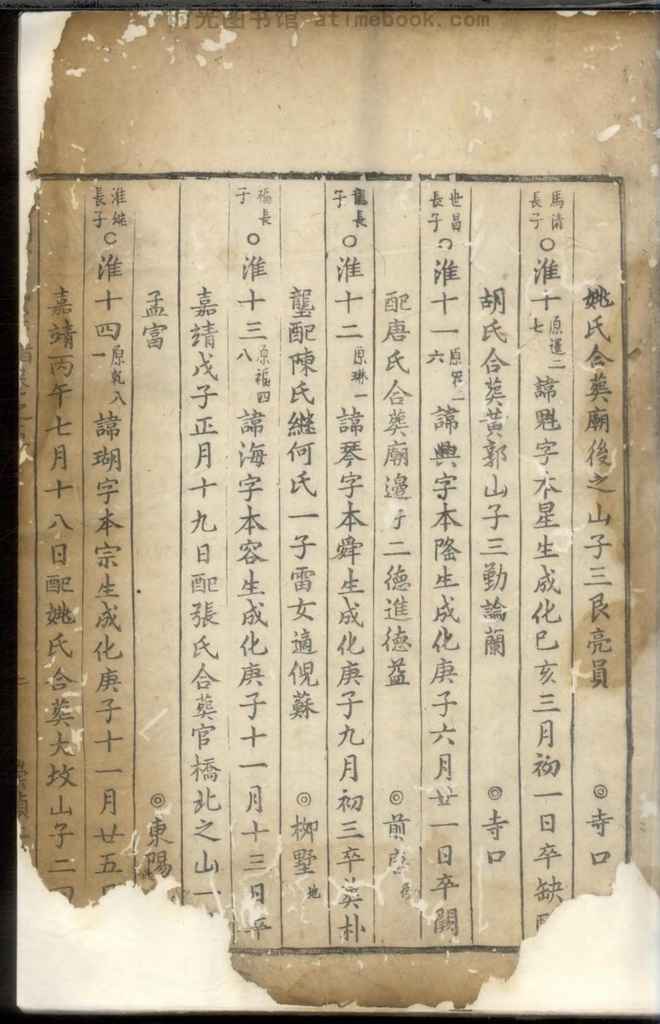 时光图书馆 atimebook.com
姚氏合葬廟後之山子三良亮員 ◎寺口
馬清長子○淮十七原遑二諱魁字本星生成化己亥三月初一日卒缺
胡氏合葬黃郭山子三勤論蘭 ◎寺口
世昌長子○淮十一六原
諱興字本隆生成化庚子六月廿一日卒闕
配唐氏合葬廟邊子二德進德益 ◎前
龍長子○淮十二原琳一諱琴字本舜生成化庚子九月初三卒葬朴
龔配陳氏繼何氏一子雷女適倪蘇 ◎柳墅地
福長子○淮十三八原福四諱海字本容生成化庚子十一月十三日卒
嘉靖戊子正月十九日配張氏合葬官橋北之山一
孟富 ◎東陽
淮繼長子○淮十四一原乾八諱瑚字本宗生成化庚子十一月廿五日
嘉靖丙午七月十八日配姚氏合葬大坟山子二